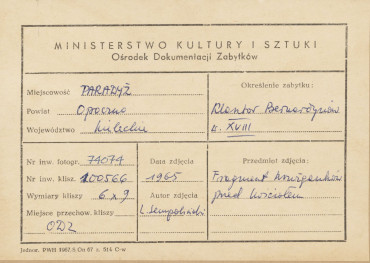 MINISTERSTWO KULTURY I SZTUKI
Ośrodek Dokumentacji Zabytków
Miejscowość PARADYŻ
Powiat Opoczno
Województwo kieleckie
Określenie zabytku:
Klasztor Bernardynów
w. XVIII
Nr inw. fotogr. 74074
Nr inw. klisz. 100566
Wymiary kliszy 6 x 9
Miejsce przechow. kliszy
ODZ
Data zdjęcia
1965
Autor zdjęcia
Przedmiot zdjęcia:
Fragment krużganków
przed kościołem